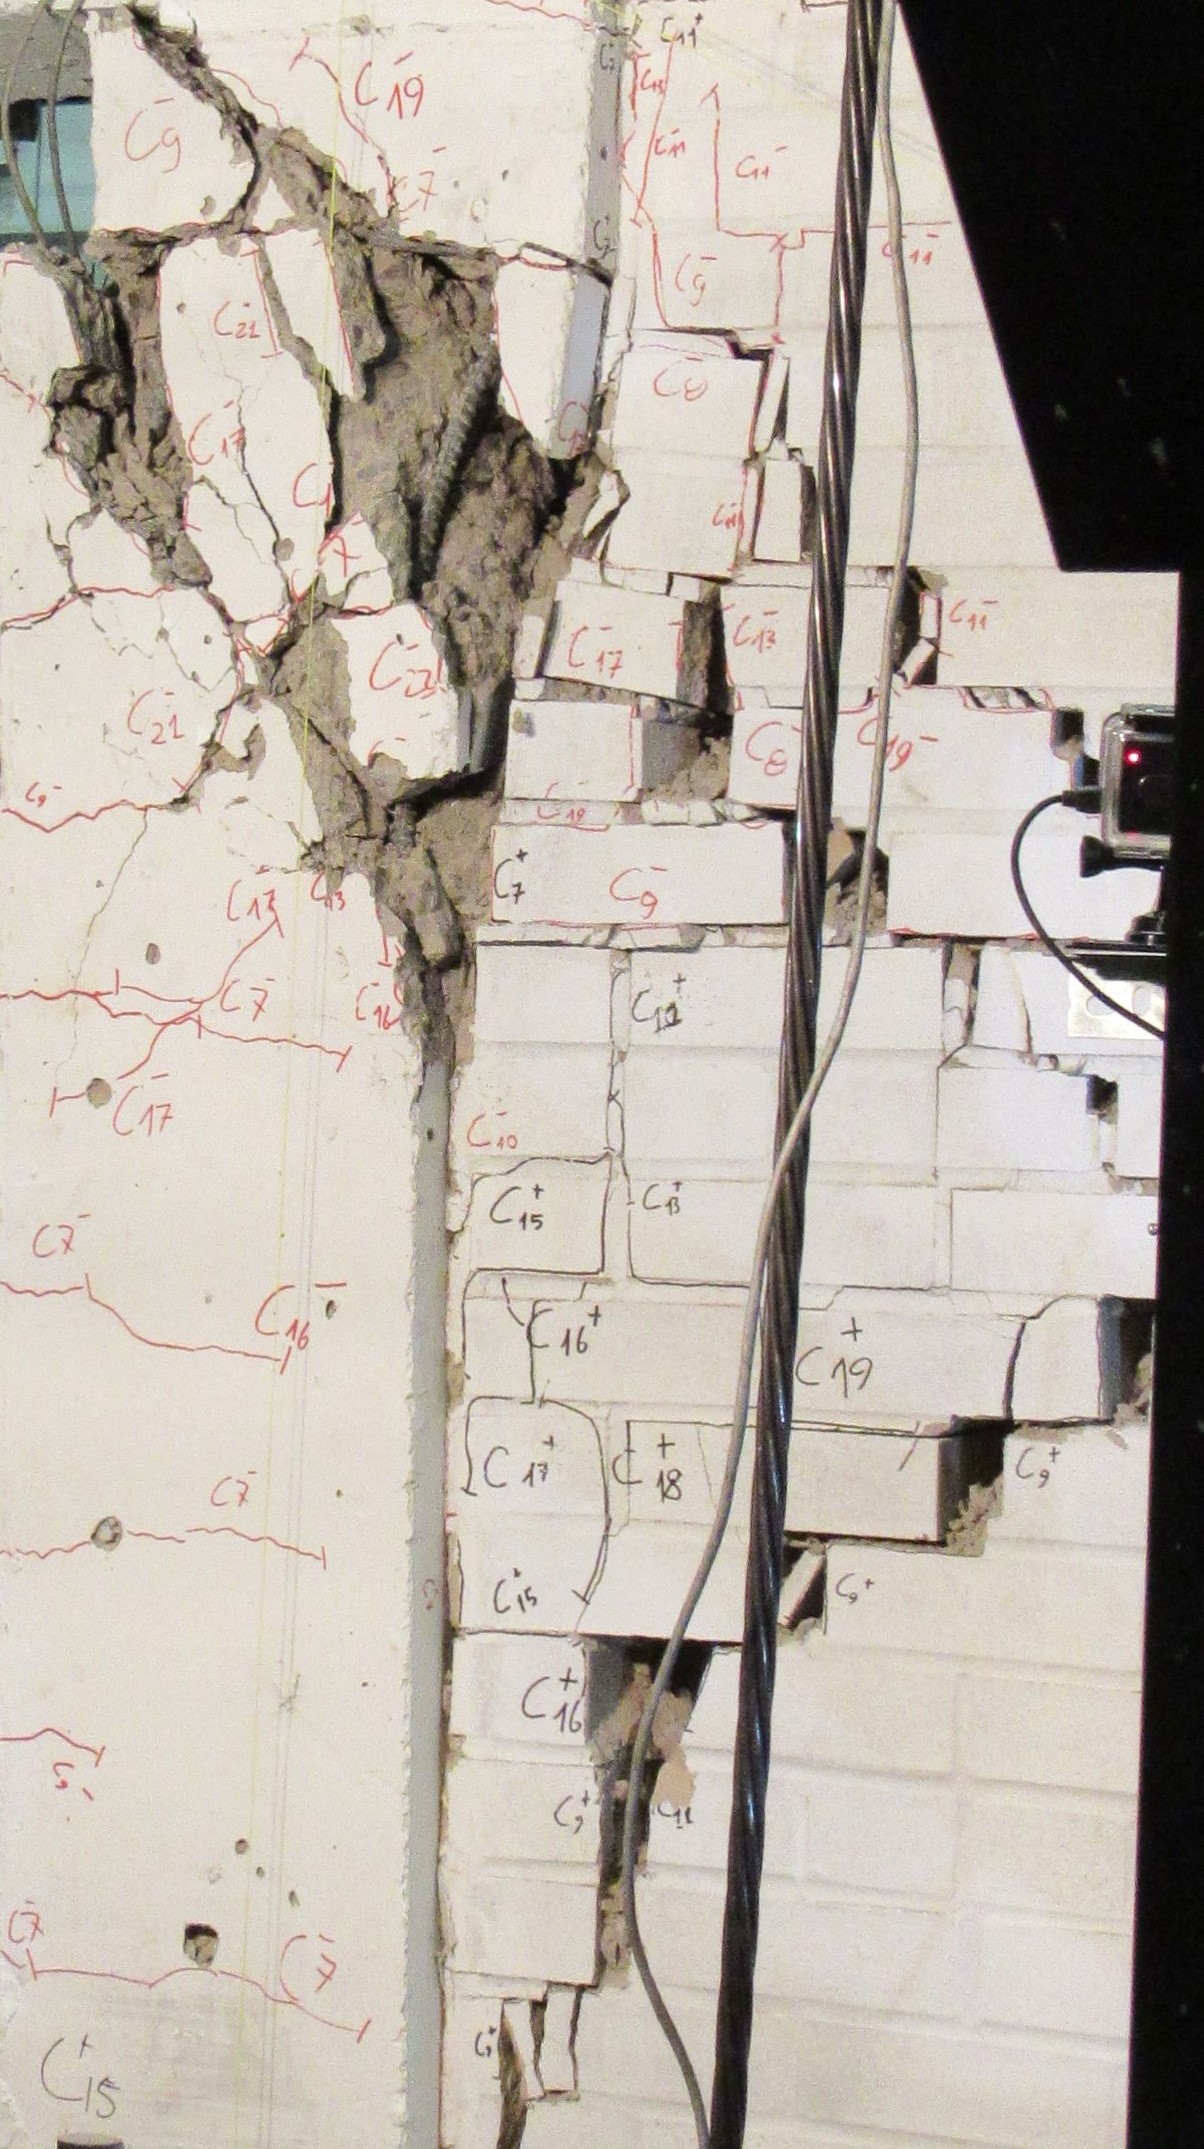 C11+
C19-
C13
C9-
C7-
C11
C11-
C11-
C9-
C21-
C8-
C17-
C1
C11
C7
C11-
C17-
C13-
C23-
C21-
C8-
C19-
C9-
C19
C7+
C9-
C13-
C13
C11+
C7-
C16
C17-
C10-
C15+
C13+
C7-
C16-
C16+
C19+
C17+
C18+
C9+
C7-
C15+
C9+
C16+
C9-
C9+
C11
C7-
C7-
C9+
C15+